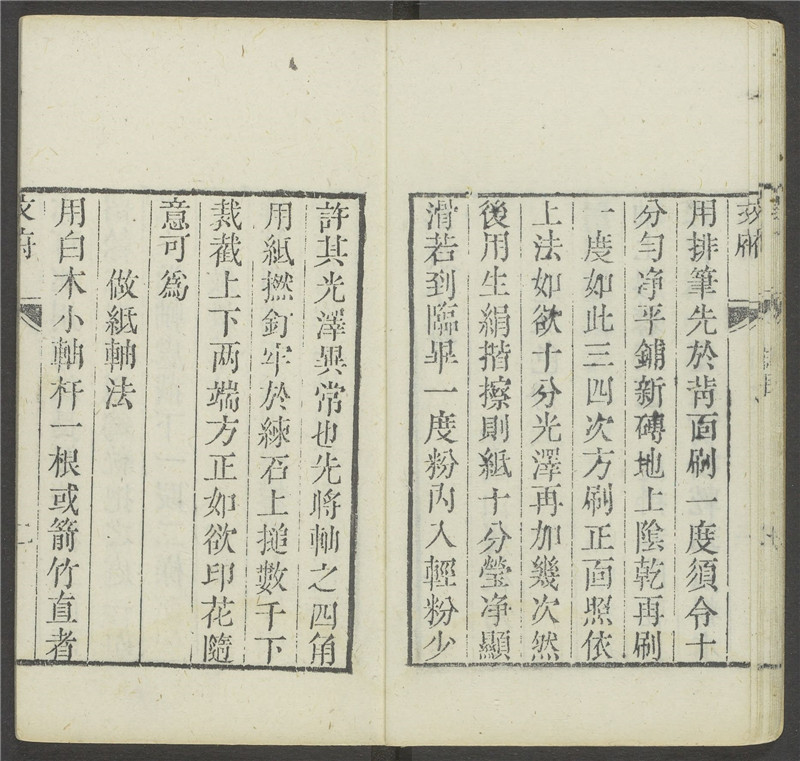 用排筆先於背面刷一度須令十
分勻净平鋪新磚地上陰乾再刷
一度如此三四次方刷正面照依
上法如欲十分光澤再加幾次然
後用生絹揩擦則紙十分瑩净顯
滑若到臨畢一度粉内入輕粉少
許其光澤異常也先將軸之四角
用紙撚釘牢於練石上搥數千下
裁截上下两端方正如欲印花隨
意可為
做紙軸法
用白木小軸杆一根或箭竹直者